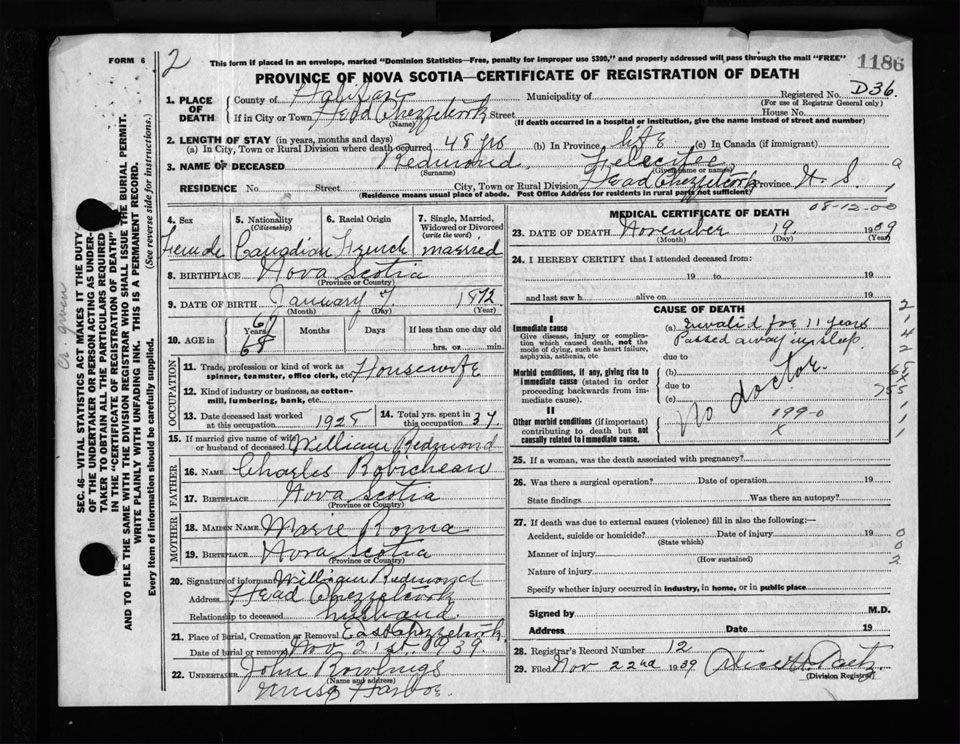 FORM 6
2
This form if placed in an envelope, marked "Dominion Statistics—Free, penalty for improper use $300," and properly addressed will pass through the mail "FREE"
1186
PROVINCE OF NOVA SCOTIA—CERTIFICATE OF REGISTRATION OF DEATH
SEC. 46—VITAL STATISTICS ACT MAKES IT THE DUTY
OF THE UNDERTAKER OR PERSON ACTING AS UNDER-
TAKER TO OBTAIN ALL THE PARTICULARS REQUIRED
IN THE "CERTIFICATE OF REGISTRATION OF DEATH"
AND TO FILE THE SAME WITH THE DIVISION REGISTRAR WHO SHALL ISSUE THE BURIAL PERMIT.
WRITE PLAINLY WITH UNFADING INK. THIS IS A PERMANENT RECORD.
Every item of information should be carefully supplied. (See reverse side for instructions.)
1. PLACE OF DEATH
County of Halifax Municipality of Registered No. D36.
(For use of Registrar General only)
If in City or Town Head Chezzetcook Street House No.
(Name) (If death occurred in a hospital or institution, give the name instead of street and number)
2. LENGTH OF STAY (in years, months and days)
(a) In City, Town or Rural Division where death occurred 48 yrs (b) In Province life (c) In Canada (if immigrant)
3. NAME OF DECEASED Redmond, Felecitee
(Surname) (Given name or names)
RESIDENCE No. Street City, Town or Rural Division Head Chezzetcook Province N. S.
(Residence means usual place of abode. Post Office Address for residents in rural parts not sufficient)
4. Sex
Female
5. Nationality
(Citizenship)
Canadian
6. Racial Origin
French
7. Single, Married, Widowed or Divorced
(write the word)
married
8. BIRTHPLACE Nova Scotia
(Province or Country)
9. DATE OF BIRTH January 7, 1872
(Month) (Day) (Year)
10. AGE in
Years Months Days If less than one day old
67
68
hrs. or min.
OCCUPATION
11. Trade, profession or kind of work as spinner, teamster, office clerk, etc. Housewife
12. Kind of industry or business, as cotton-mill, lumbering, bank, etc.
13. Date deceased last worked at this occupation 1928
14. Total yrs. spent in this occupation 37.
15. If married give name of wife or husband of deceased William Redmond
FATHER
16. NAME Charles Robicheau
17. BIRTHPLACE Nova Scotia
(Province or Country)
MOTHER
18. MAIDEN NAME Marie Roma
19. BIRTHPLACE Nova Scotia
(Province or Country)
20. Signature of informant William Redmond
Address Head Chezzetcook
Relationship to deceased husband.
21. Place of Burial, Cremation or Removal East Chezzetcook.
Date of burial or removal Nov 21st, 1939.
22. UNDERTAKER John Rowlings
(Name and address)
Musq Harboe.
MEDICAL CERTIFICATE OF DEATH
08-12-00
23. DATE OF DEATH November 19 1939
(Month) (Day) (Year)
24. I HEREBY CERTIFY that I attended deceased from:
19 to 19
and last saw h alive on 19
CAUSE OF DEATH
I
Immediate cause
Give disease, injury or complication which caused death, not the mode of dying, such as heart failure, asphyxia, asthenia, etc
(a) Invalid for 11 years
Passed away in sleep
due to
Morbid conditions, if any, giving rise to immediate cause (stated in order proceeding backwards from immediate cause).
(b)
due to
(c)
No doctor.
II
Other morbid conditions (if important) contributing to death but not causally related to immediate cause.
199-0
X
25. If a woman, was the death associated with pregnancy?
26. Was there a surgical operation? Date of operation 19
State findings Was there an autopsy?
27. If death was due to external causes (violence) fill in also the following:—
Accident, suicide or homicide? Date of injury 19
(State which)
Manner of injury
(How sustained)
Nature of injury
Specify whether injury occurred in industry, in home, or in public place
Signed by M.D.
Address Date 19
28. Registrar's Record Number 12
29. Filed Nov 22nd 1939
(Division Registrar)